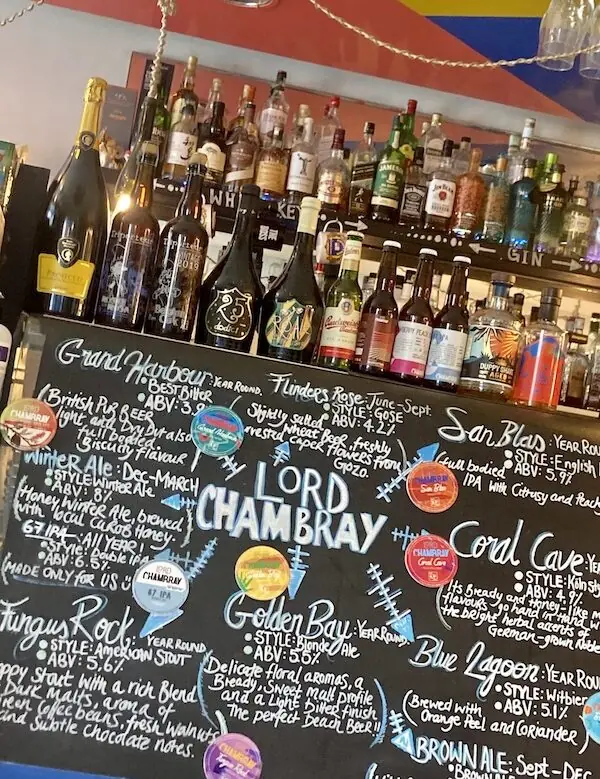 WHISKEY
GIN
JAMESON
JIM BEAM
Prosecco
Budweiser
DUPPY SHARE
AGED
Grand Harbour: YEAR ROUND.
• BEST BITTER
• ABV: 3.
(British Pub BEER
light and Dry But also
Full bodied,
Biscuity Flavour
Flinders Rose: June-Sept.
• STYLE: GOSE
• ABV: 4.2%
Slightly salted
Wheat Beer, freshly
Harvested Caper flowers from
Gozo
San Blas: YEAR ROU
• STYLE: English I
• ABV: 5.9%
(full bodied
IPA with Citrusy and Peach
Winter Ale: Dec-MARCH
• STYLE: Winter Ale
• ABV: 8%
(Honey Winter Ale, brewed
with local Carob Honey.
67 IPA ALL YEAR!
• STYLE: Double IPA
• ABV: 6.5%
(MADE ONLY FOR US
LORD
CHAMBRAY
Coral Cave: YE
• STYLE: Kölsh Sty
• ABV: 4.9%
Its Bready and Honey-like m
flavours go hand in hand w
the bright herbal accents of
German-grown Noble
Fungus Rock: YEAR ROUND
• STYLE: AMERICAN STOUT
• ABV: 5.6%
ppy start with a rich Blend
Dark malts, aroma of
reen Coffee beans, fresh walnuts
and Subtle Chocolate notes.
Golden Bay: YEAR ROUND.
• STYLE: Blonde Ale
• ABV: 5.5%
(Delicate floral aromas, a
Bready, Sweet malt Profile
and a Light Dried finish
The perfect Beach Beer!!)
Blue Lagoon: YEAR ROU
• STYLE: Witbier
• ABV: 5.1%
(Brewed with
Orange Peel and Coriander)
BROWN ALE: Sept-DEC
LORD
CHAMBRAY
Grand Harbour
CHAMBRAY
San Blas
CHAMBRAY
Coral Cave
LORD
CHAMBRAY
67 IPA
CHAMBRAY
Fungus Rock